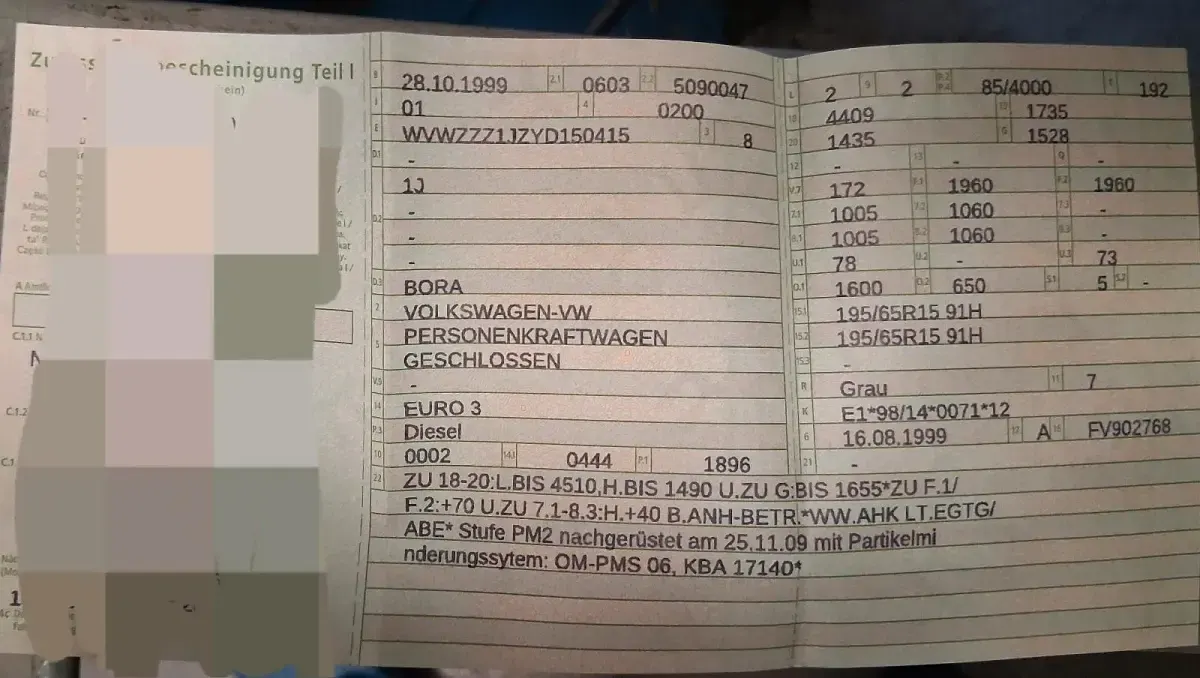 escheinigung Teil I
ein)
Nr.
B 28.10.1999 2.1 0603 2.2 5090047
J 01 4 0200
E WVWZZZ1JZYD150415 3 8
D.1 -
1J
D.2 -
-
-
D.3 BORA
2 VOLKSWAGEN-VW
5 PERSONENKRAFTWAGEN
GESCHLOSSEN
V.9 -
14 EURO 3
P.3 Diesel
10 0002 14.1 0444 P.1 1896
L 2 9 2 P.2 P.4 85/4000 T 192
18 4409 19 1735
20 1435 G 1528
12 - 13 - Q -
V.7 172 F.1 1960 F.2 1960
7.1 1005 7.2 1060 7.3 -
8.1 1005 8.2 1060 8.3 -
U.1 78 U.2 - U.3 73
O.1 1600 O.2 650 S.1 5 S.2 -
15.1 195/65R15 91H
15.2 195/65R15 91H
15.3 -
R Grau 11 7
K E1*98/14*0071*12
6 16.08.1999 17 A 16 FV902768
21 -
22 ZU 18-20:L.BIS 4510,H.BIS 1490 U.ZU G:BIS 1655*ZU F.1/
F.2:+70 U.ZU 7.1-8.3:H.+40 B.ANH-BETR.*WW.AHK LT.EGTG/
ABE* Stufe PM2 nachgerüstet am 25.11.09 mit Partikelmi
nderungssytem: OM-PMS 06, KBA 17140*